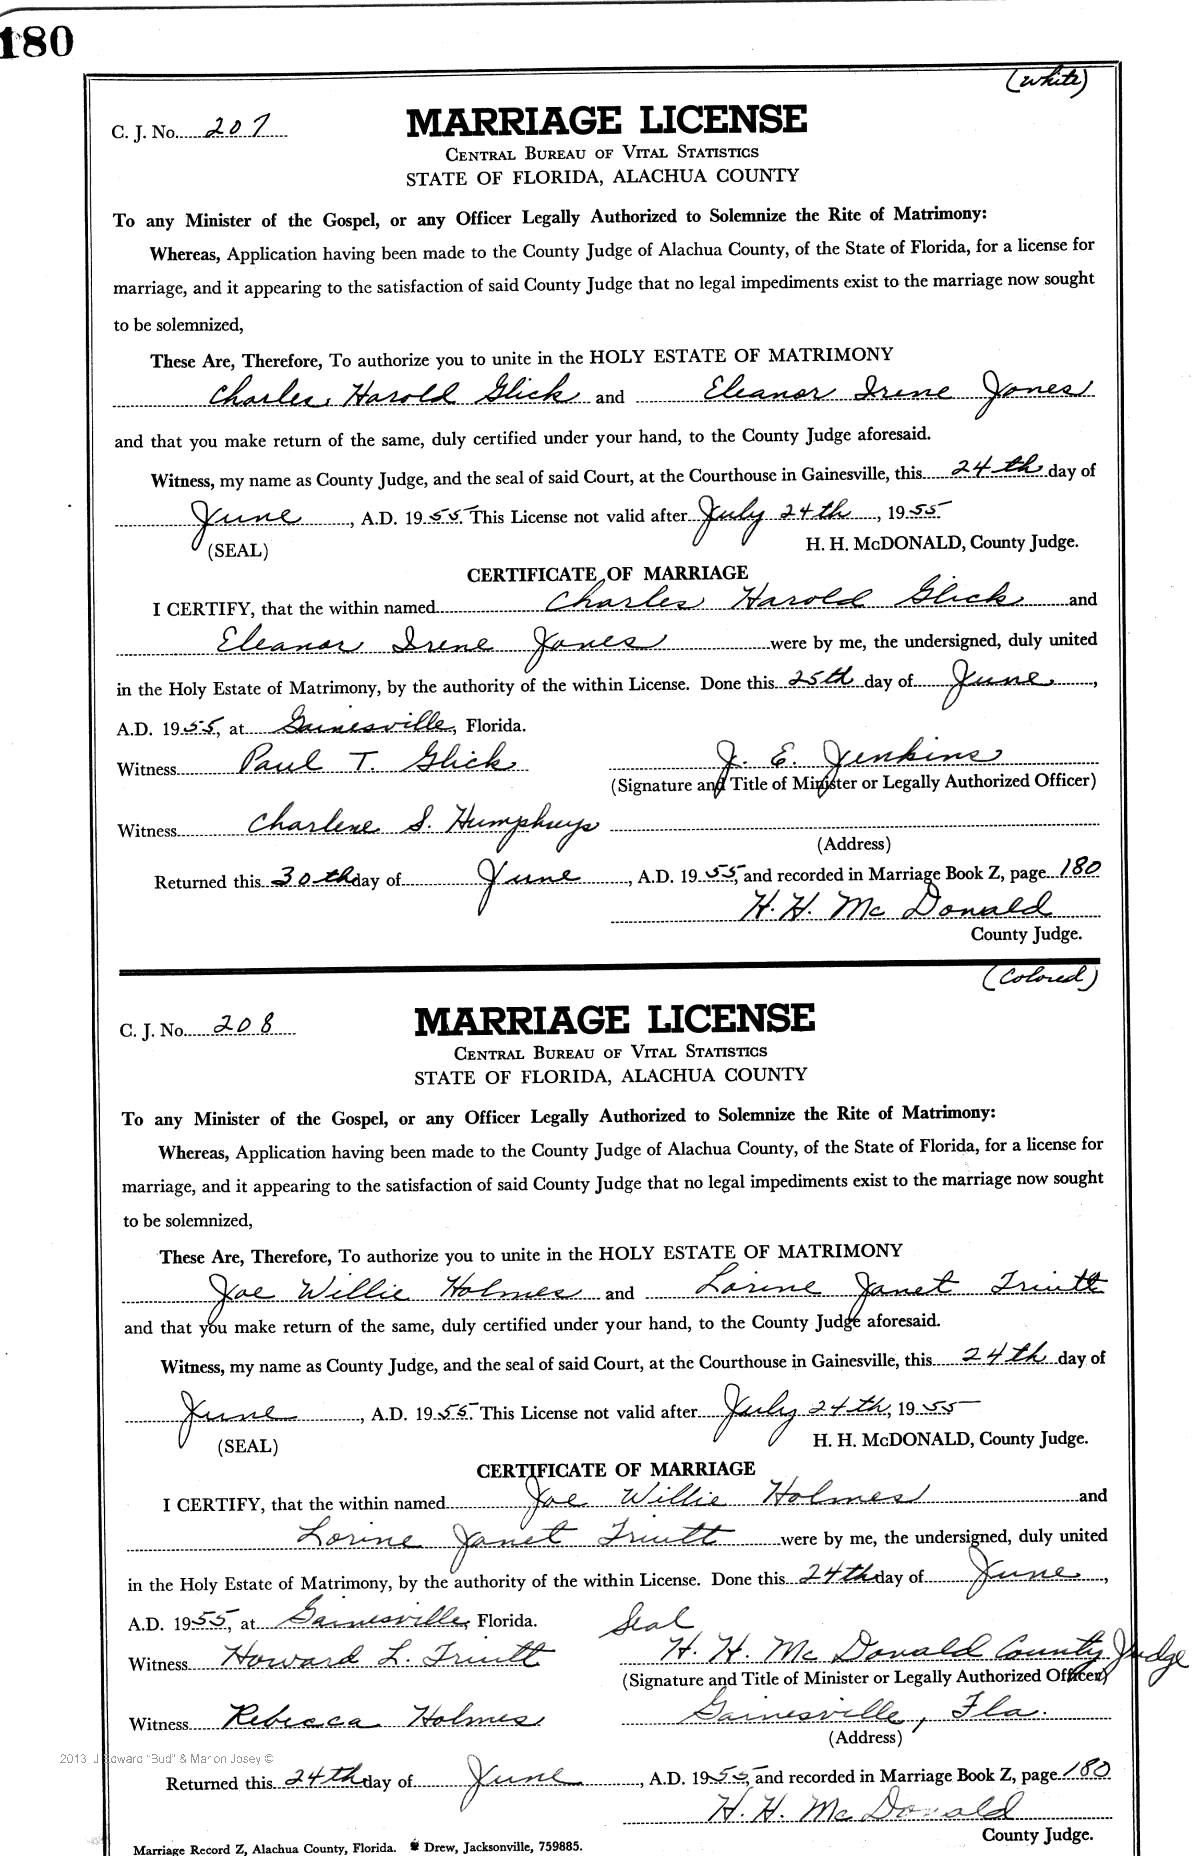 180
(White)
C. J. No. 207
MARRIAGE LICENSE
CENTRAL BUREAU OF VITAL STATISTICS
STATE OF FLORIDA, ALACHUA COUNTY
To any Minister of the Gospel, or any Officer Legally Authorized to Solemnize the Rite of Matrimony:
Whereas, Application having been made to the County Judge of Alachua County, of the State of Florida, for a license for
marriage, and it appearing to the satisfaction of said County Judge that no legal impediments exist to the marriage now sought
to be solemnized,
These Are, Therefore, To authorize you to unite in the HOLY ESTATE OF MATRIMONY
Charles Harold Glick and Eleanor Irene Jones
and that you make return of the same, duly certified under your hand, to the County Judge aforesaid.
Witness, my name as County Judge, and the seal of said Court, at the Courthouse in Gainesville, this 24th day of
June, A.D. 1955. This License not valid after July 24th, 1955
(SEAL) H. H. McDONALD, County Judge.
CERTIFICATE OF MARRIAGE
I CERTIFY, that the within named Charles Harold Glick and
Eleanor Irene Jones were by me, the undersigned, duly united
in the Holy Estate of Matrimony, by the authority of the within License. Done this 25th day of June,
A.D. 1955, at Gainesville, Florida.
Witness Paul T. Glick J. E. Jenkins
(Signature and Title of Minister or Legally Authorized Officer)
Witness Charlene S. Humphrys
(Address)
Returned this 30th day of June, A.D. 1955, and recorded in Marriage Book Z, page 180
H. H. McDonald
County Judge.
(Colored)
C. J. No. 208
MARRIAGE LICENSE
CENTRAL BUREAU OF VITAL STATISTICS
STATE OF FLORIDA, ALACHUA COUNTY
To any Minister of the Gospel, or any Officer Legally Authorized to Solemnize the Rite of Matrimony:
Whereas, Application having been made to the County Judge of Alachua County, of the State of Florida, for a license for
marriage, and it appearing to the satisfaction of said County Judge that no legal impediments exist to the marriage now sought
to be solemnized,
These Are, Therefore, To authorize you to unite in the HOLY ESTATE OF MATRIMONY
Joe Willie Holmes and Lorine Janet
and that you make return of the same, duly certified under your hand, to the County Judge aforesaid.
Witness, my name as County Judge, and the seal of said Court, at the Courthouse in Gainesville, this 24th day of
June, A.D. 1955. This License not valid after July 24th, 1955
(SEAL) H. H. McDONALD, County Judge.
CERTIFICATE OF MARRIAGE
I CERTIFY, that the within named Joe Willie Holmes and
Lorine Janet were by me, the undersigned, duly united
in the Holy Estate of Matrimony, by the authority of the within License. Done this 24th day of June,
A.D. 1955, at Gainesville, Florida. Seal
Witness Howard L. H. H. McDonald County Judge
(Signature and Title of Minister or Legally Authorized Officer)
Witness Rebecca Holmes Gainesville, Fla.
(Address)
2013 J Edward "Bud" & Marion Josey ©
Returned this 24th day of June, A.D. 1955, and recorded in Marriage Book Z, page 180
H. H. McDonald
County Judge.
Marriage Record Z, Alachua County, Florida. Drew, Jacksonville, 759885.